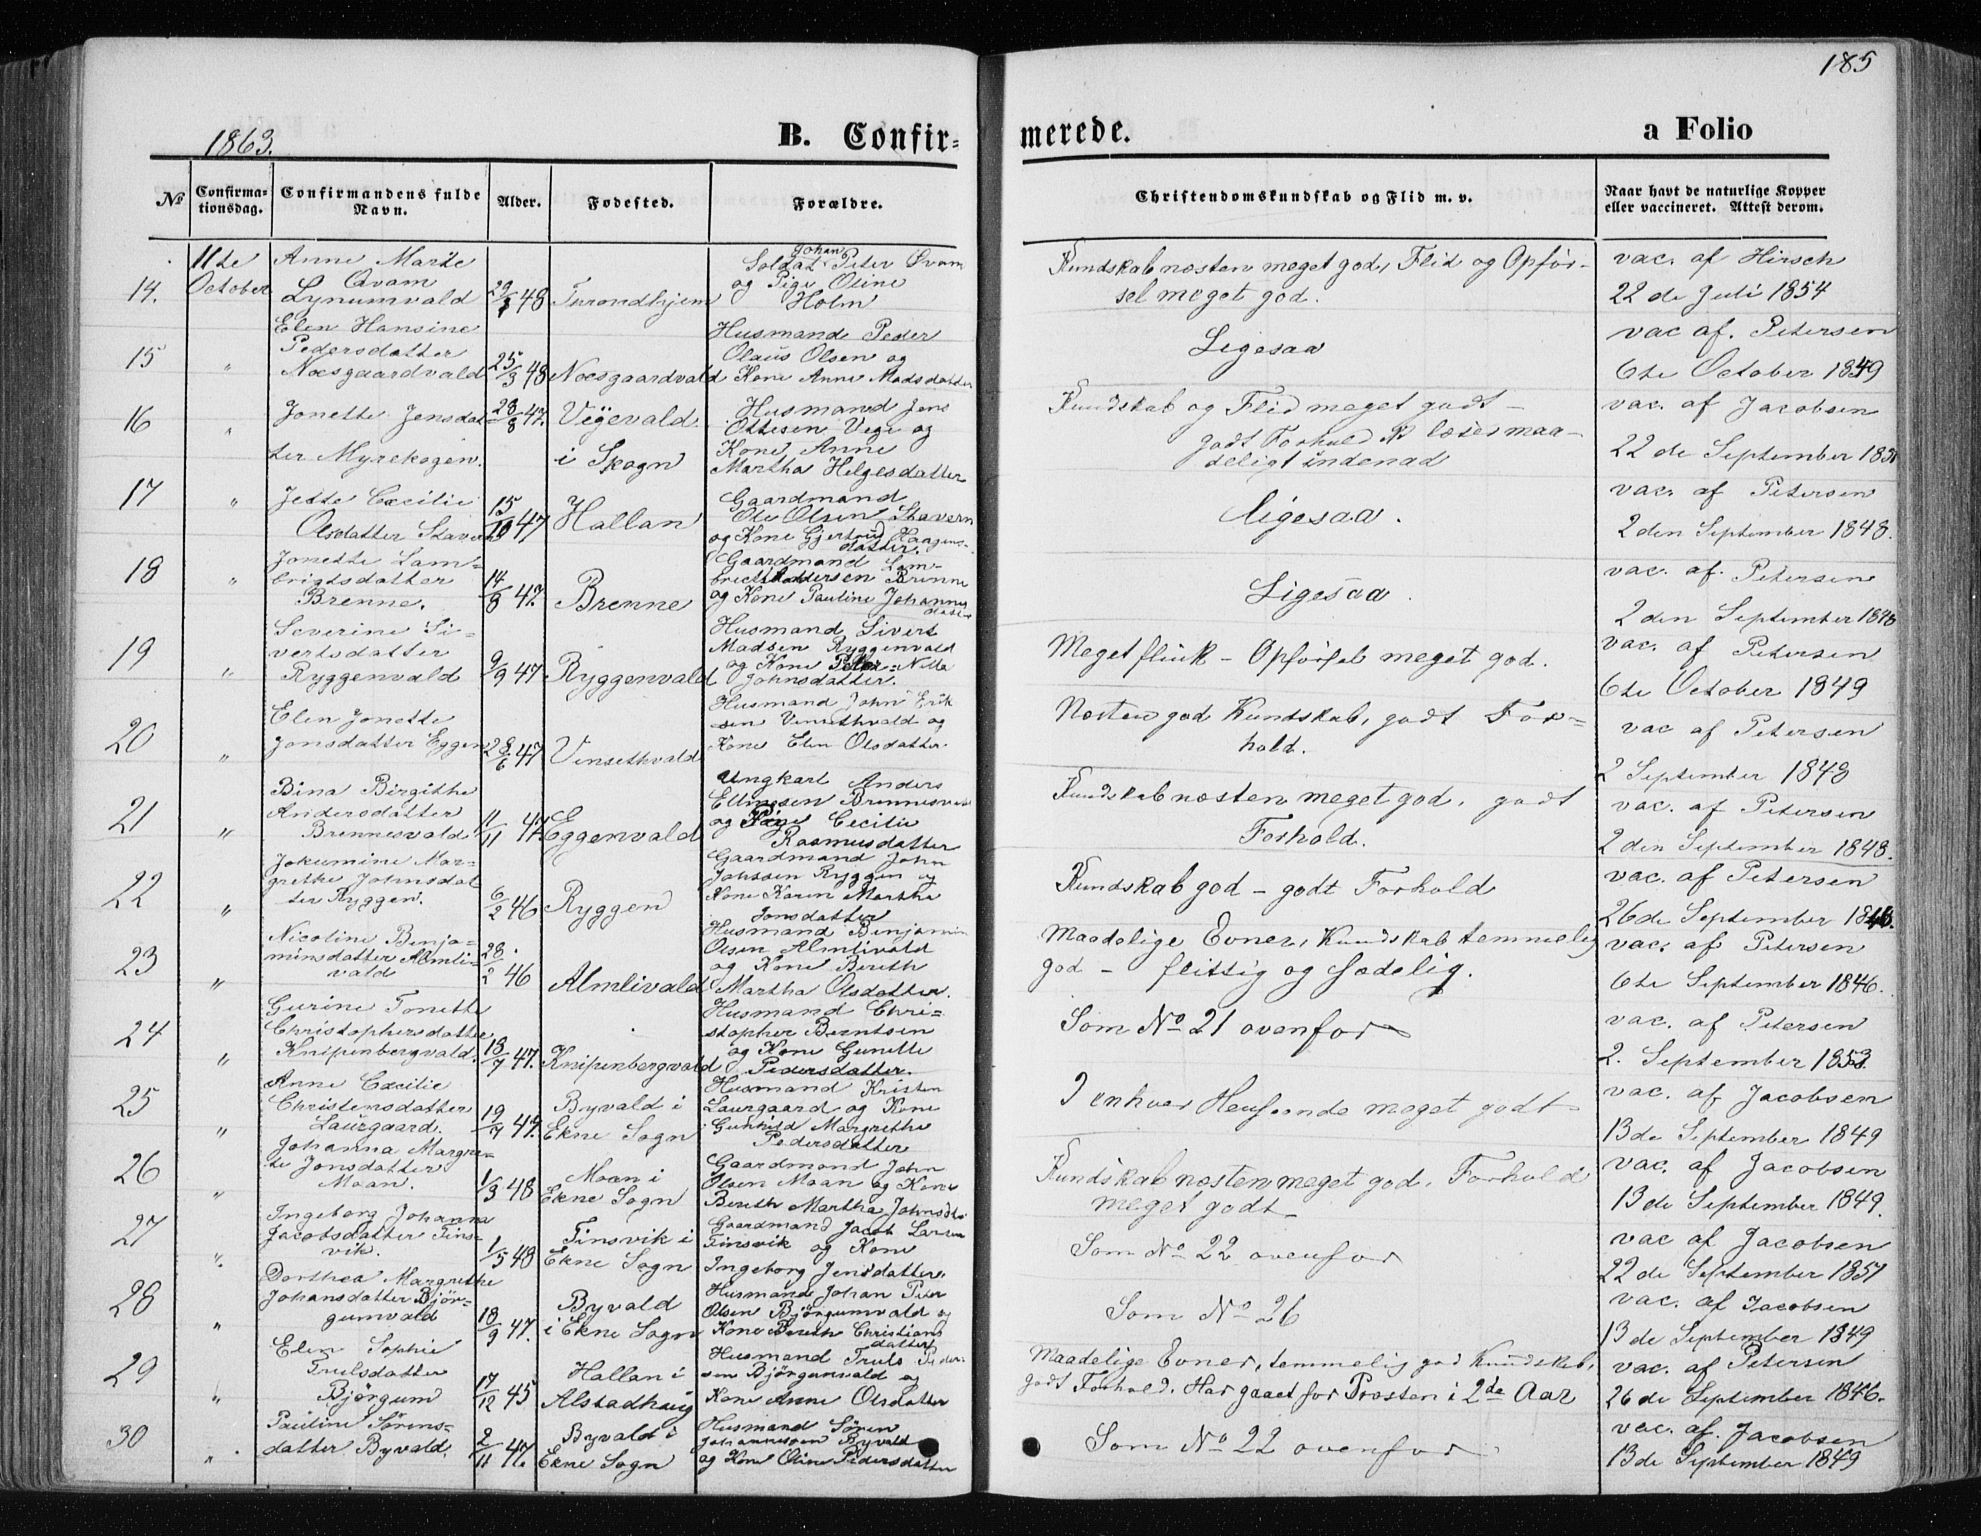 185
1863.
B. Confir-
merede.
a Folio
No
Confirma-
tionsdag.
Confirmandens fulde
Navn.
Alder.
Fødested.
Forældre.
Christendomskundskab og Flid m. v.
Naar havt de naturlige Kopper
eller vaccineret. Attest derom.
14.
11te
October
Anne Marie
Qvam
Lynumvald
29/ 48
Trondhjem
Johan
Soldat Peter Qvam
og Pige Oline
Holm
Kundskab næsten meget god, Flid og Opfør-
sel meget god.
vac. af Hirsch
22de Juli 1854
15
"
Elen Hansine
Pedersdatter
Næsgaardvald
25/3 48
Næsgaardvald
Husmand Peder
Olaus Olsen og
Kone Anne Madsdatter
Ligesaa
vac af. Petersen
6te October 1849
16
"
Jonette Jensdat-
ter Myrekogen.
28/8 47.
Veievald
i Skogn
Husmand Jens
Ottesen Veie og
Kone Anne
Martha Helgesdatter
Kundskab og Flid meget godt -
godt Forhold læser maa-
deligt indenad
vac. af Jacobsen
22de September 1851
17
"
Jette Cæcilie
Olsdatter Stavern
15/10 47
Hallan
Gaardmand
Ole Olsen Stavern
og Kone Gjertrud Haagens-
datter.
Ligesaa.
vac. af Petersen
2den September 1848.
18
"
Jonette Lam-
brigtsdatter
Brenne.
14/8 47.
Brenne
Gaardmand Lam-
brecht Andersen Brenne
og Kone Pauline Johannes
datter
Ligesaa.
vac. af. Petersen
2den September 1848
19
"
Severine Si-
vertsdatter
Ryggenvald
9/9 47
Ryggenvald
Husmand Sivert
Madsen Ryggenvald
og Kone Peter-Nella
Johnsdatter.
Meget flink - Opførsel meget god.
vac. af Petersen
6te October 1849
20
"
Elen Jonette
Jonsdatter Eggen
28/6 47
Vinsethvald
Husmand John Erik
sen Vinsethvald og
Kone Elen Olsdatter
Næsten god Kundskab, godt For-
hold.
vac af Petersen
2 September 1848
21
"
Bina Birgithe
Andersdatter
Brennesvald
11/11 47.
Eggenvald
Ungkarl Anders
Ellingsen Brennesvald
og Pige Cecilie
Rasmusdatter
Kundskab næsten meget god, godt
Forhold.
vac. af Petersen
2den September 1848.
22
"
Jokumine Mar-
grethe Johnsdat
ter Ryggen.
6/2 46
Ryggen
Gaardmand John
Johnsen Ryggen og
Kone Karen Martha
Jonsdatter
Kundskab god - godt Forhold
vac. af Petersen
26de September 1846.
23
"
Nicoline Benja-
minsdatter Almli-
vald
28/2 46
Almlivald
Husmand Benjamin
Olsen Almlivald
og Kone Bereth
Martha Olsdatter.
Maadelige Evner, Kundskab temmelig
god - flittig og sædelig.
vac. af Petersen
6te September 1846.
24
"
Gurine Tonette
Christophersdatter
Knipenbergvald.
18/7 47.
Knipenbergvald
Husmand Chri-
stopher Berntsen
og Kone Gunette
Pedersdatter.
Som No 21 ovenfor
vac. af Petersen
2. September 1853.
25
"
Anne Cæcilie
Christensdatter
Laurgaard.
19/7 47.
Byvald i
Ekne Sogn
Husmand Kristen
Laurgaard og Kone
Gunhild Margrethe
Pedersdatter
I enhver Henseende meget godt
vac. af Jacobsen
13de September 1849
26
"
Johanna Margre-
te Jonsdatter
Moan.
1/3 48
Moan i
Ekne Sogn
Gaardmand John
Olsen Moan og Kone
Bereth Martha Johnsdtr
Kundskab næsten meget god, Forhold
meget godt
vac. af Jacobsen
13de September 1849.
27
"
Ingeborg Johanna
Jacobsdatter Tins-
vik.
1/5 48
Tinsvik i
Ekne Sogn
Gaardmand Jacob Larsen
Tinsvik og Kone
Ingeborg Jensdatter.
Som No 22 ovenfor
vac af Jacobsen
22de September 1851
28
"
Dorthea Margrethe
Johansdatter Bjør-
gumvald
18/9 47.
Byvald
i Ekne Sogn
Husmand Johan Peter
Olsen Bjørgumvald og
Kone Bereth Christians
datter
Som No 26
vac. af Jacobsen
13de September 1849
29
"
Elen Sophie
Trulsdatter
Bjørgum
17/12 45
Hallan i
Alstadhaug
Husmand Truls Peder-
sen Bjørgumvald og
Kone Anne Olsdatter
Maadelige Evner, temmelig god Kundskab,
godt Forhold. Har gaaet for Præsten i 2de Aar
vac. af Petersen
26de September 1846.
30
"
Pauline Sørens-
datter Byvald.
2/11 47.
Byvald i
Ekne Sogn
Husmand Søren
Johannesen Byvald
og Kone Oline Pedersdatter
Som No 22 ovenfor
vac. af. Jacobsen
13de September 1849